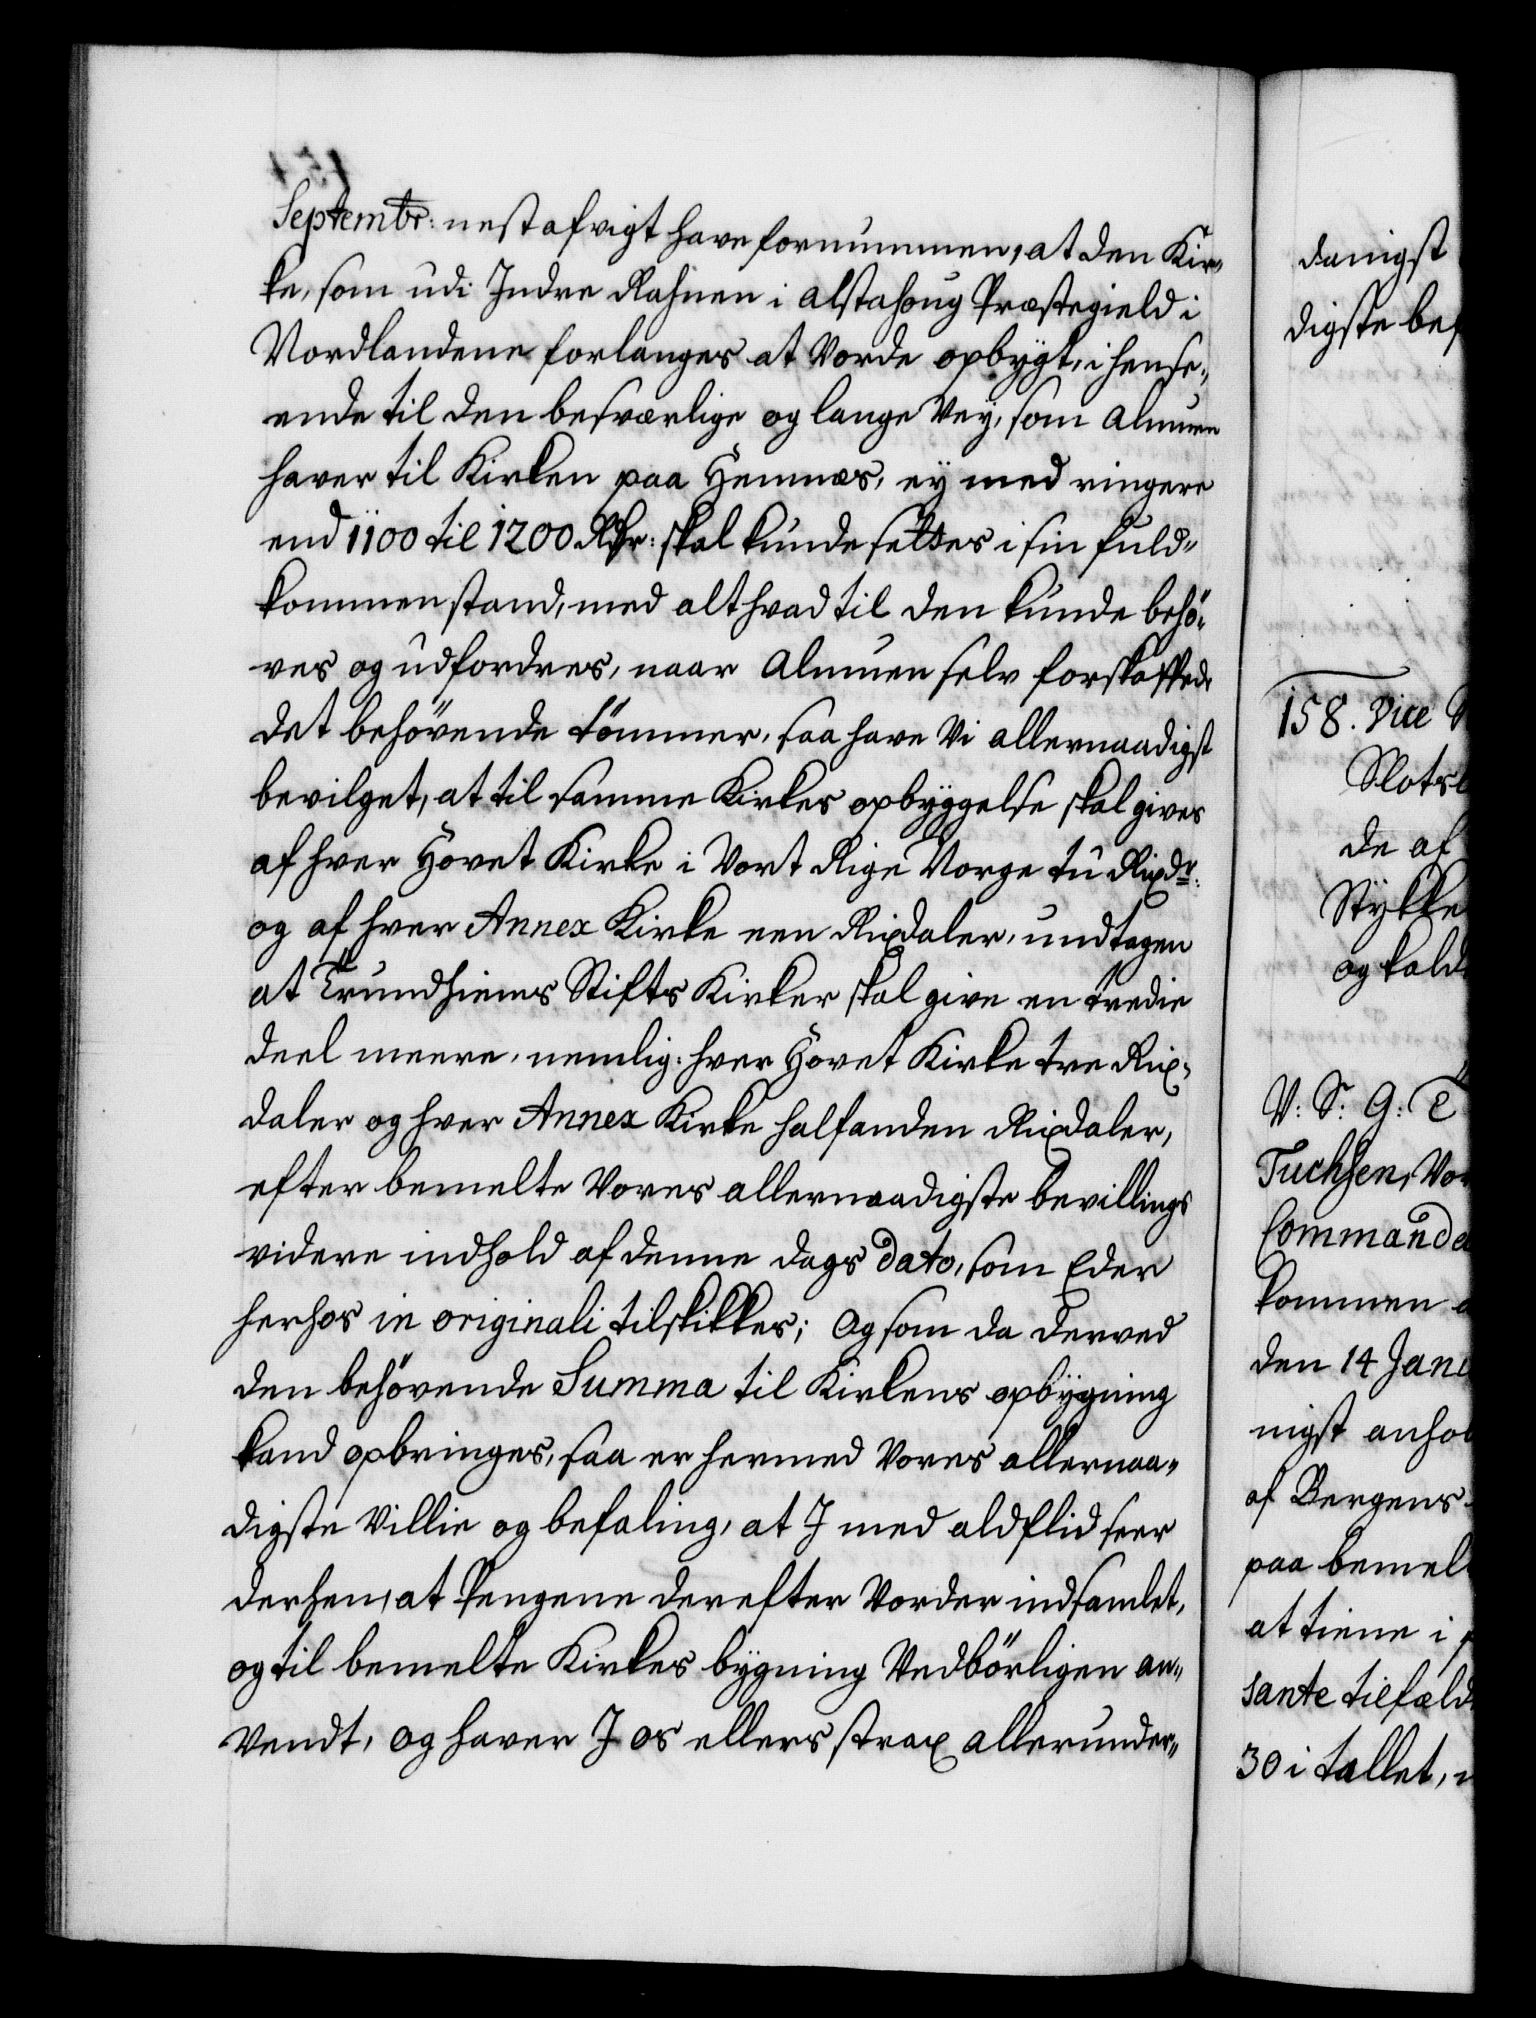 Septembr: nest afvigt have fornummen, at den Kir„
ke, som udi Indre Rahnen i Alstahoug Præstegield i
Nordlandene forlanges at Vorde opbygt, i hense„
ende til den besværlige og lange Vey, som Almuen
haver til Kirken paa Hemnæs, ey med ringere
end 1100 til 1200 Rdr: skal kunde settes i sin fuld„
kommen stand, med alt hvad til den kunde behö„
ves og udfordres, naar Almuen selv forskaffede
det behövende tömmer, saa have Vi allernaadigst
bevilget, at til samme Kirkes opbyggelse skal gives
af hver Hovet Kirke i Vort Rige Norge tu Rixdr:
og af hver Annex Kirke een Rixdaler, undtagen
at Trundhiems Stifts Kirker skal give en tredie
deel meere, nemlig: hver Hovet Kirke tre Rix„
daler og hver Annex Kirke halfanden Rixdaler,
efter bemelte Vores allernaadigste bevillings
videre indhold af denne dags dato, som Eder
herhos in originali tilskikkes; Og som da derved
den behövende Summa til Kirkens opbygning
kand opbringes, saa er hermed Vores allernaa„
digste Villie og befaling, at I med ald flid seer
derhen, at Pengene derefter Vorder indsamlet,
og til bemelte Kirkes bygning Vedbörligen an„
Vendt, og haver I os ellers strax allerunder„
danigst
digste bef
158. Vice
Slots
de af
Stykke
og kald
V: S: G:
Tuchsen, Vor
Commande
kommen
den 14 Jan
nigst anhol
af Bergens
paa bemel
at tiene i
sante tilfæld
30 i tallet,